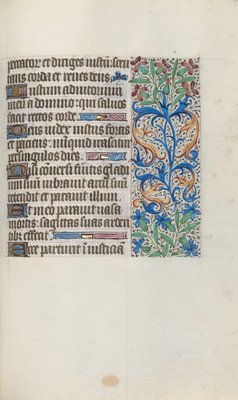 peccator et diriges iustu: scru
tans corda et renes deus
Iustum adiutorium
meu a domino: qui saluos
facit rectos corde
Deus iudex iustus fortis
et paciens: nuquid irascit
per singulos dies
Nisi conversi fueritis gladi
um suu vibravit arcu suu
tetendit et paravit illum
Et in eo paravit vasa
mortis: sagittas suas arden
tib effecit
Ecce parturit iusticia